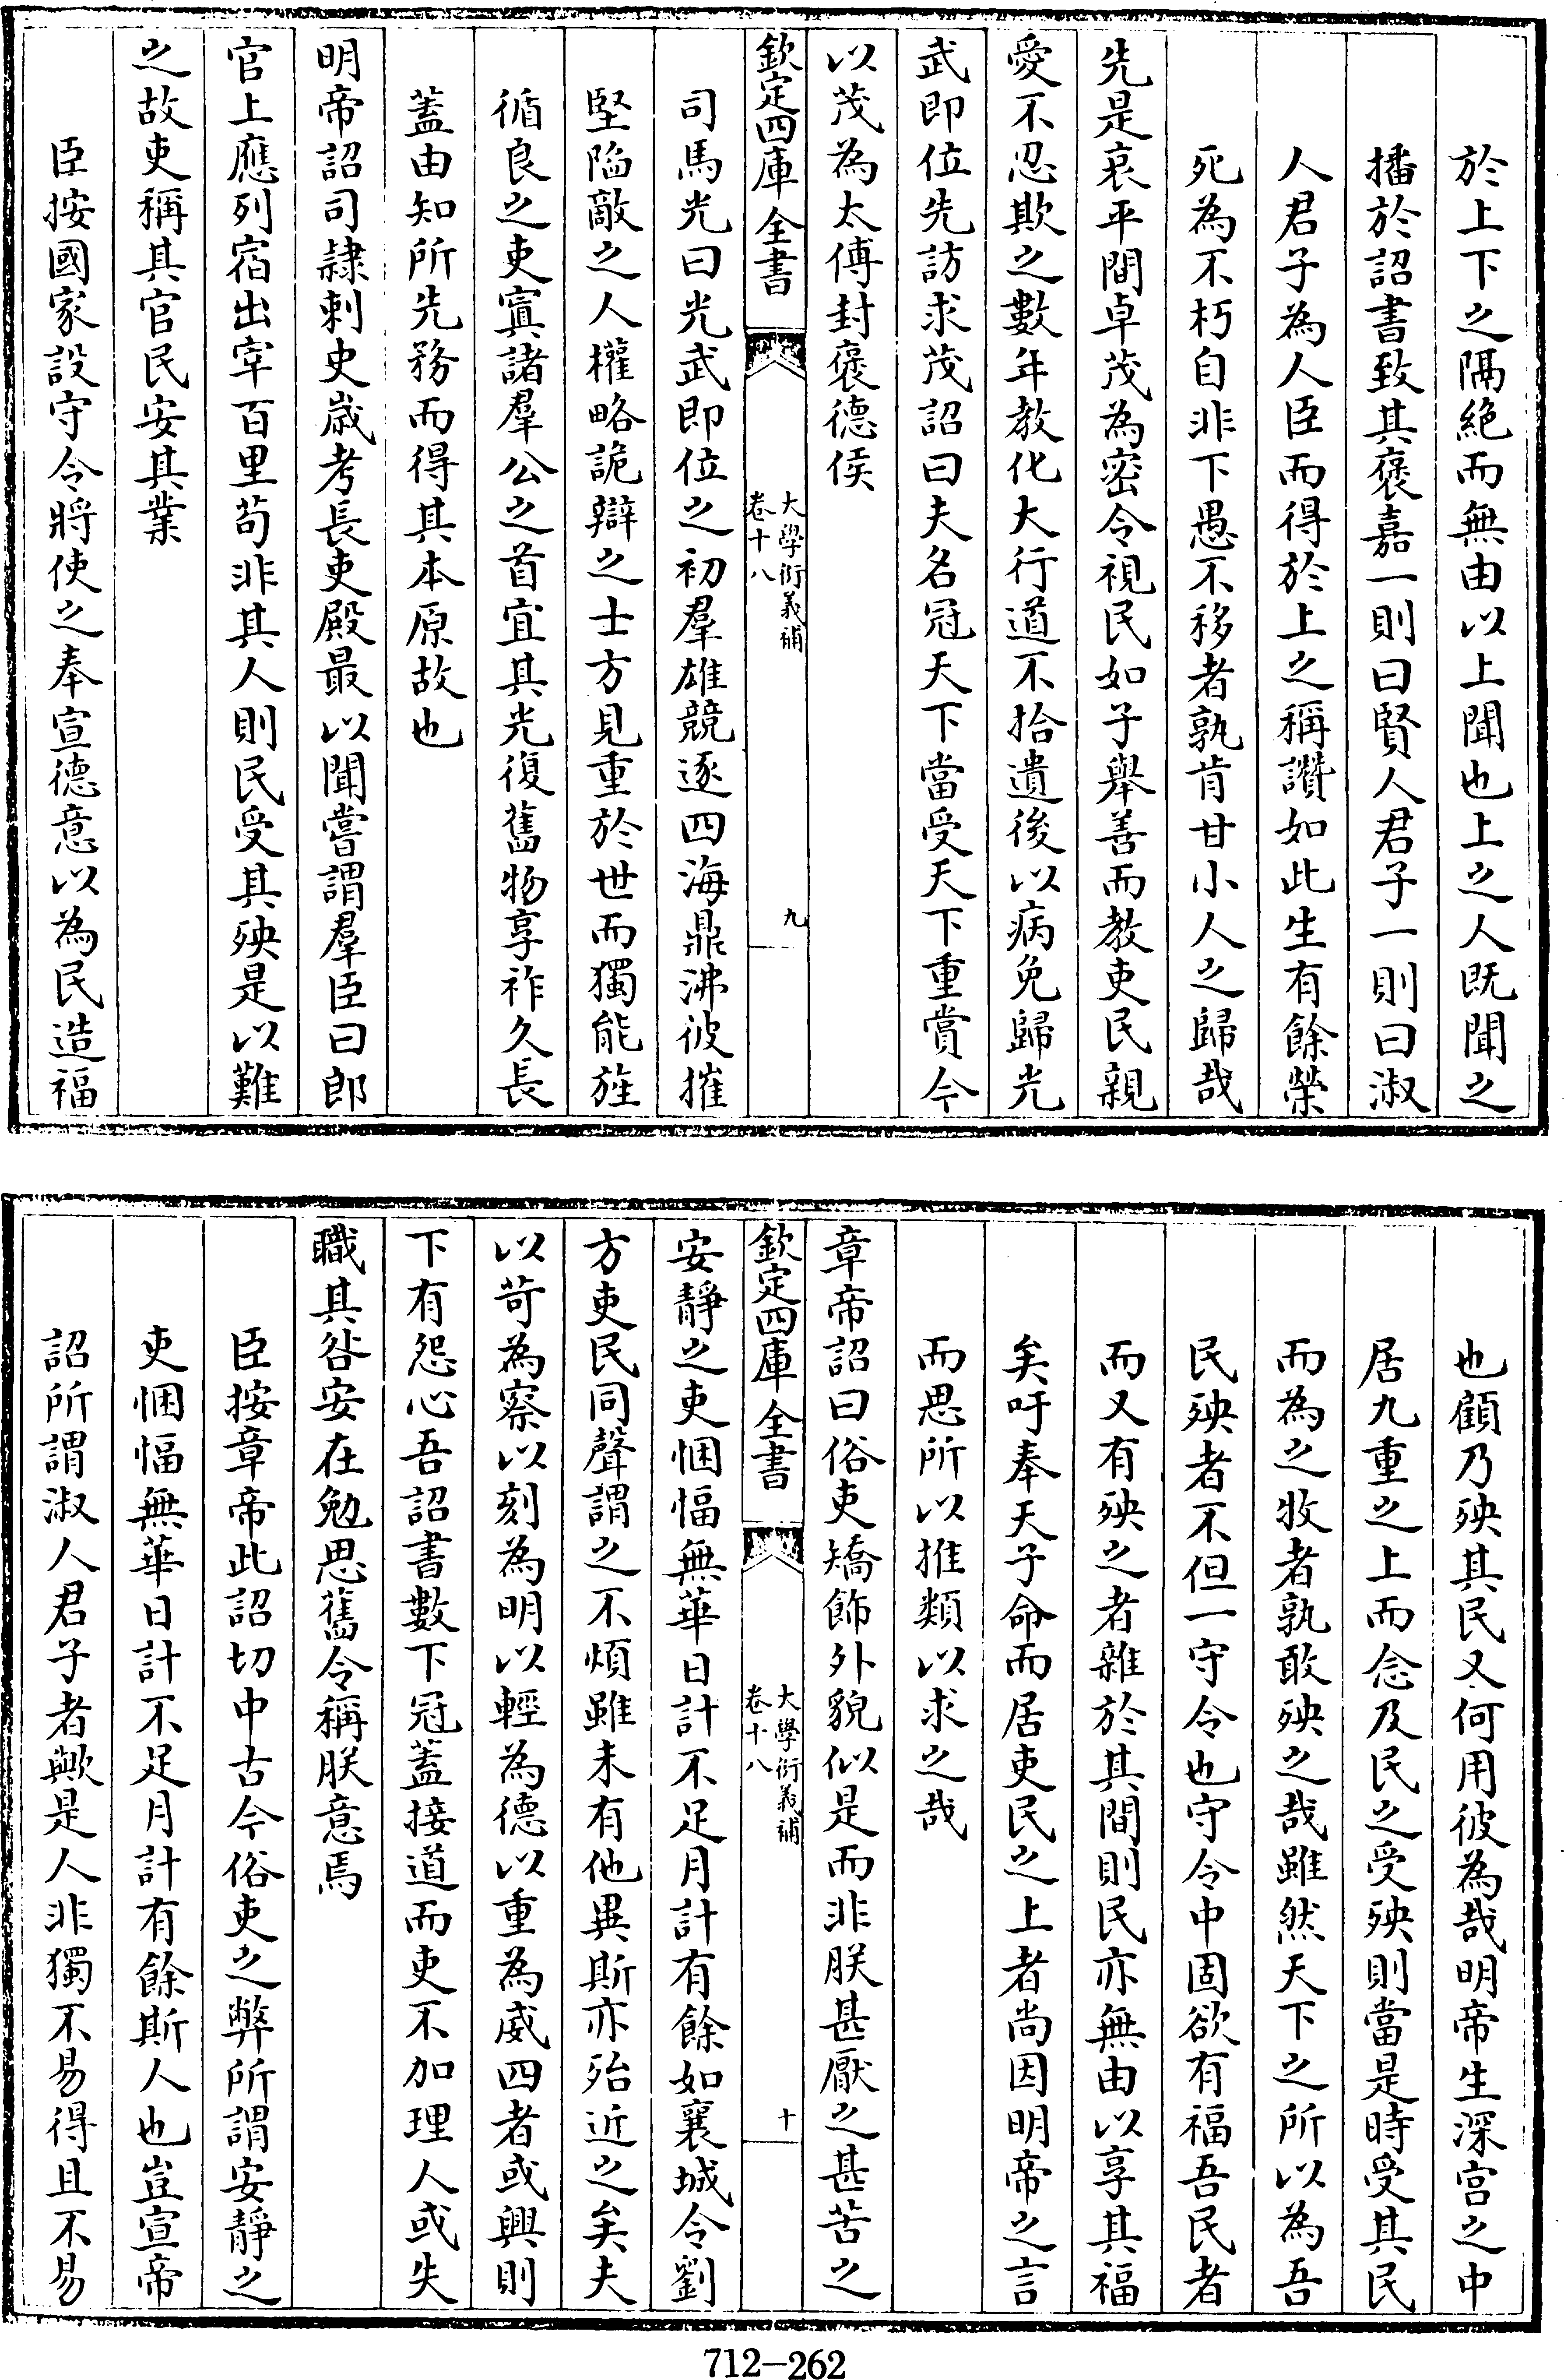 於上下之隔絶而無由以上聞也上之人既聞之
播於詔書致其褒嘉一則曰賢人君子一則曰淑
人君子為人臣而得於上之稱讚如此生有餘榮
死為不朽自非下愚不移者孰肯甘小人之歸哉
先是哀平間卓茂為密令視民如子舉善而教吏民親
愛不忍欺之數年教化大行道不拾遺後以病免歸光
武即位先訪求茂詔曰夫名冠天下當受天下重賞今
以茂為太傅封褒德侯
欽定四庫全書
大學衍義補
卷十八
九
司馬光曰光武即位之初羣雄競逐四海鼎沸彼摧
堅陷敵之人權略詭辯之士方見重於世而獨能旌
循良之吏寘諸羣公之首宜其光復舊物享祚久長
蓋由知所先務而得其本原故也
明帝詔司隷刺史歳考長吏殿最以聞嘗謂羣臣曰郎
官上應列宿出宰百里茍非其人則民受其殃是以難
之故吏稱其官民安其業
臣按國家設守令將使之奉宣德意以為民造福
也顧乃殃其民又何用彼為哉明帝生深宫之中
居九重之上而念及民之受殃則當是時受其民
而為之牧者孰敢殃之哉雖然天下之所以為吾
民殃者不但一守令也守令中固欲有福吾民者
而又有殃之者雜於其間則民亦無由以享其福
矣吁奉天子命而居吏民之上者尚因明帝之言
而思所以推類以求之哉
章帝詔曰俗吏矯飾外貌似是而非朕甚厭之甚苦之
欽定四庫全書
大學衍義補
卷十八
十
安靜之吏悃愊無華日計不足月計有餘如襄城令劉
方吏民同聲謂之不煩雖未有他異斯亦殆近之矣夫
以苛為察以刻為明以輕為德以重為威四者或興則
下有怨心吾詔書數下冠蓋接道而吏不加理人或失
職其咎安在勉思舊令稱朕意焉
臣按章帝此詔切中古今俗吏之弊所謂安靜之
吏悃愊無華日計不足月計有餘斯人也豈宣帝
詔所謂淑人君子者歟是人非獨不易得且不易
712-262